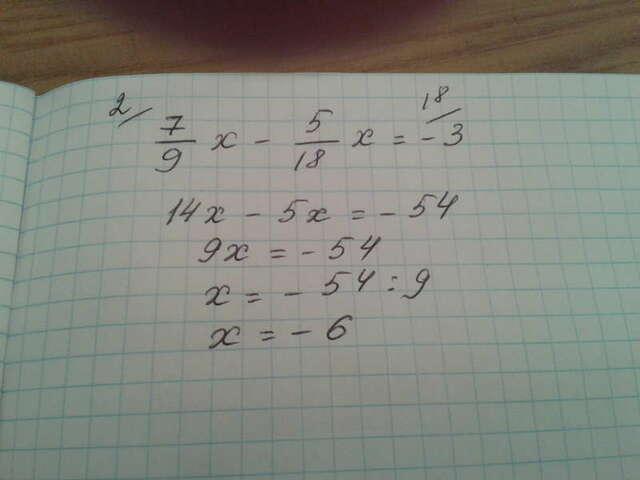 2/ 7/9 x - 5/18 x = 18/ -3
14x - 5x = - 54
9x = - 54
x = - 54 : 9
x = - 6